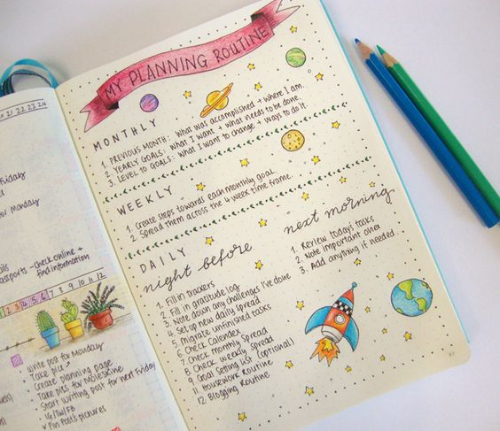 21 22 23 24
Friday
Monday
- Check online +
find information
2 3 4 5 6 7 8 9 10 11 12
Write post for Monday
Take pix
Create planning page
Take pics for
Start writing post for next Friday
pictures
MY PLANNING ROUTINE
MONTHLY
1. PREVIOUS MONTH: What was accomplished + where I am.
2. YEARLY GOALS: What I want + what needs to be done.
3. LEVEL 10 GOALS: What I want to change + ways to do it.
WEEKLY
1. Create steps towards each monthly goal
2. Spread them across the 4 week time frame.
DAILY
night before
1. Fill in trackers
2. Fill in gratitude log
3. Note down any challenges I've done
4. Set up new daily spread
5. Migrate unfinished tasks
6. Check Calendex
7. Check monthly spread
8. Check weekly spread
9. Goal Setting list (optional)
11. Housework Routine
12. Blogging Routine
next morning
1. Review today's tasks
2. Note important ones
3. Add anything if needed.